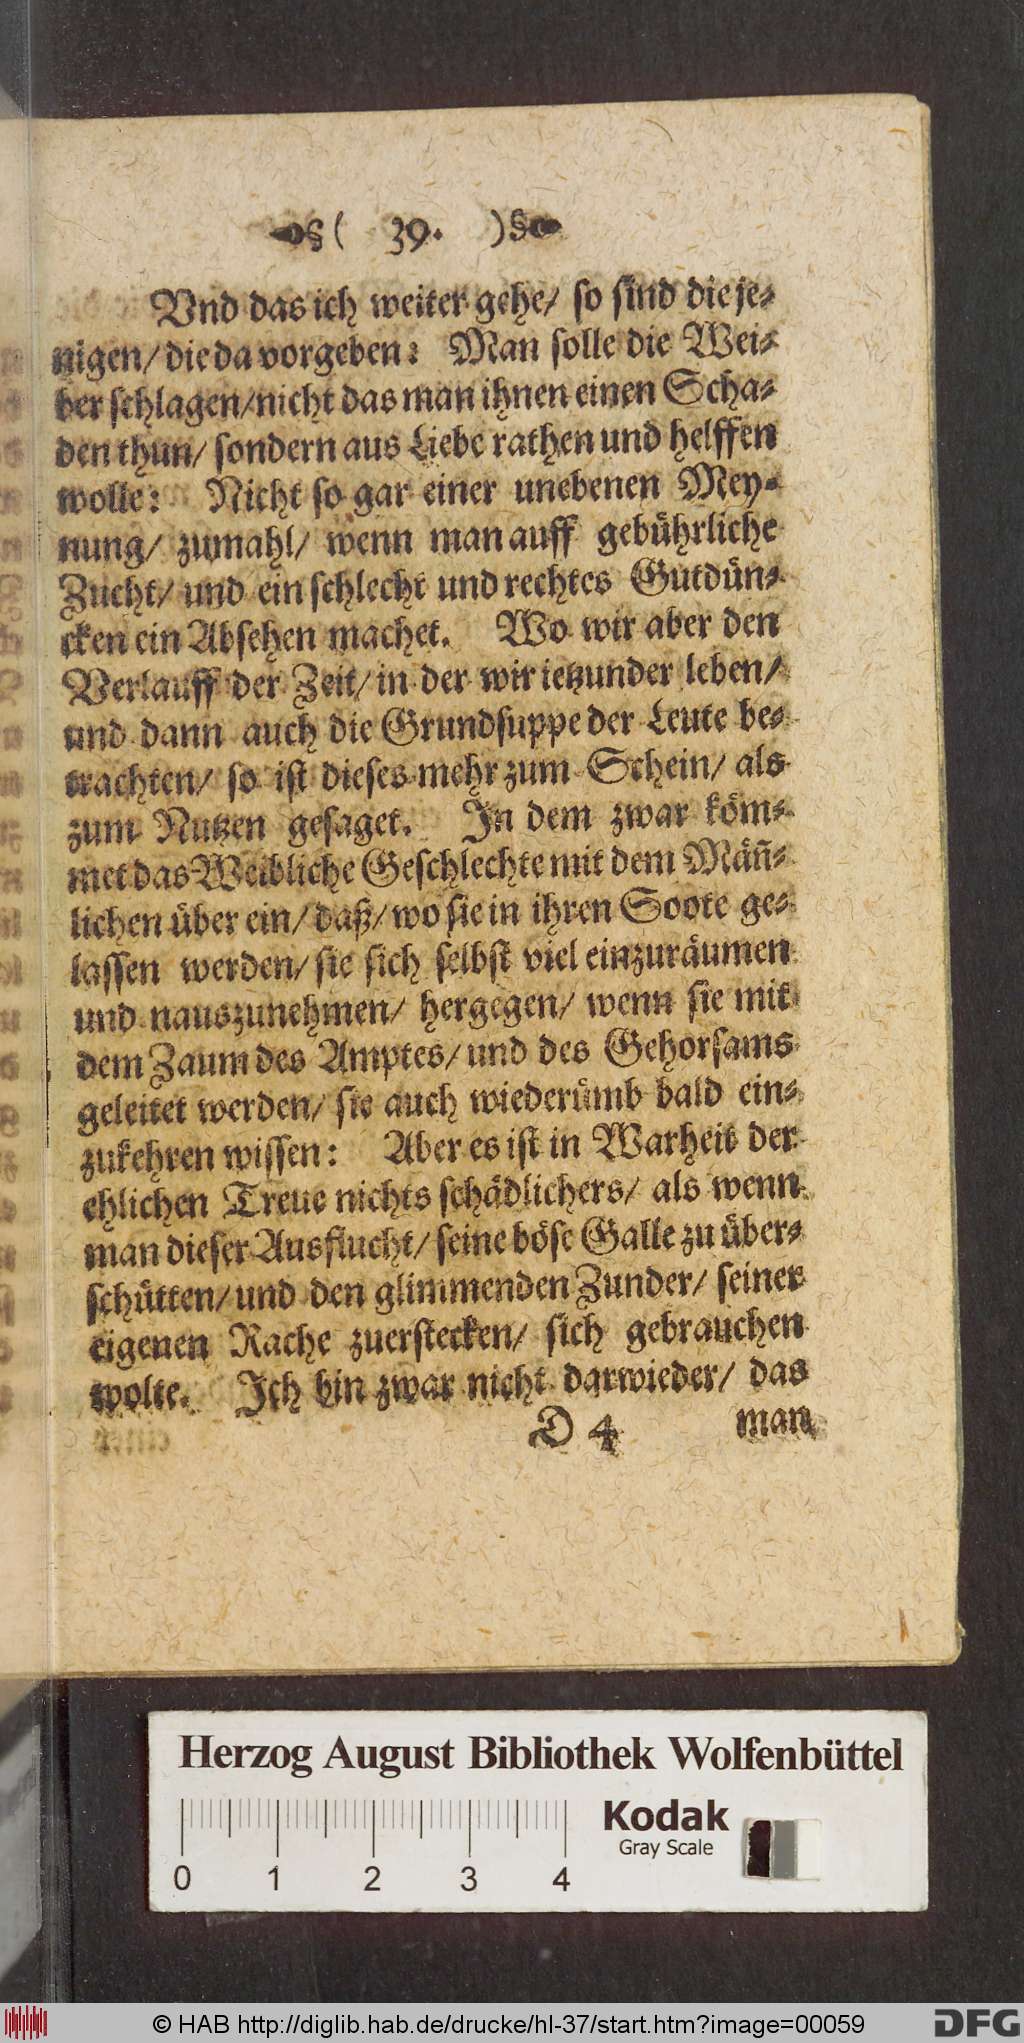 ( 39. )
Vnd das ich weiter gehe/ so sind die je-
nigen/ die da vorgeben: Man solle die Wei-
ber schlagen/nicht das man ihnen einen Scha-
den thun/ sondern aus Liebe rathen und helffen
wolle: Nicht so gar einer unebenen Mey-
nung/ zumahl/ wenn man auff gebührliche
Zucht/ und ein schlecht und rechtes Gutdün-
cken ein Absehen machet. Wo wir aber den
Verlauff der Zeit/ in der wir ietzunder leben/
und dann auch die Grundsuppe der Leute be-
trachten/ so ist dieses mehr zum Schein/ als
zum Nutzen gesaget. In dem zwar köm-
met das Weibliche Geschlechte mit dem Mäñ-
lichen über ein/ daß/ wo sie in ihren Soote ge-
lassen werden/ sie sich selbst viel einzuräumen
und nauszunehmen/ hergegen/ wenn sie mit
dem Zaum des Amptes/ und des Gehorsams
geleitet werden/ sie auch wiederümb bald ein-
zukehren wissen: Aber es ist in Warheit der
ehlichen Treue nichts schädlichers/ als wenn
man dieser Ausflucht/ seine böse Galle zu über-
schütten/ und den glimmenden Zunder/ seiner
eigenen Rache zuerstecken/ sich gebrauchen
wolte. Ich bin zwar nicht darwieder/ das
D 4 man
Herzog August Bibliothek Wolfenbüttel
Kodak
Gray Scale
0 1 2 3 4
© HAB http://diglib.hab.de/drucke/hl-37/start.htm?image=00059
DFG